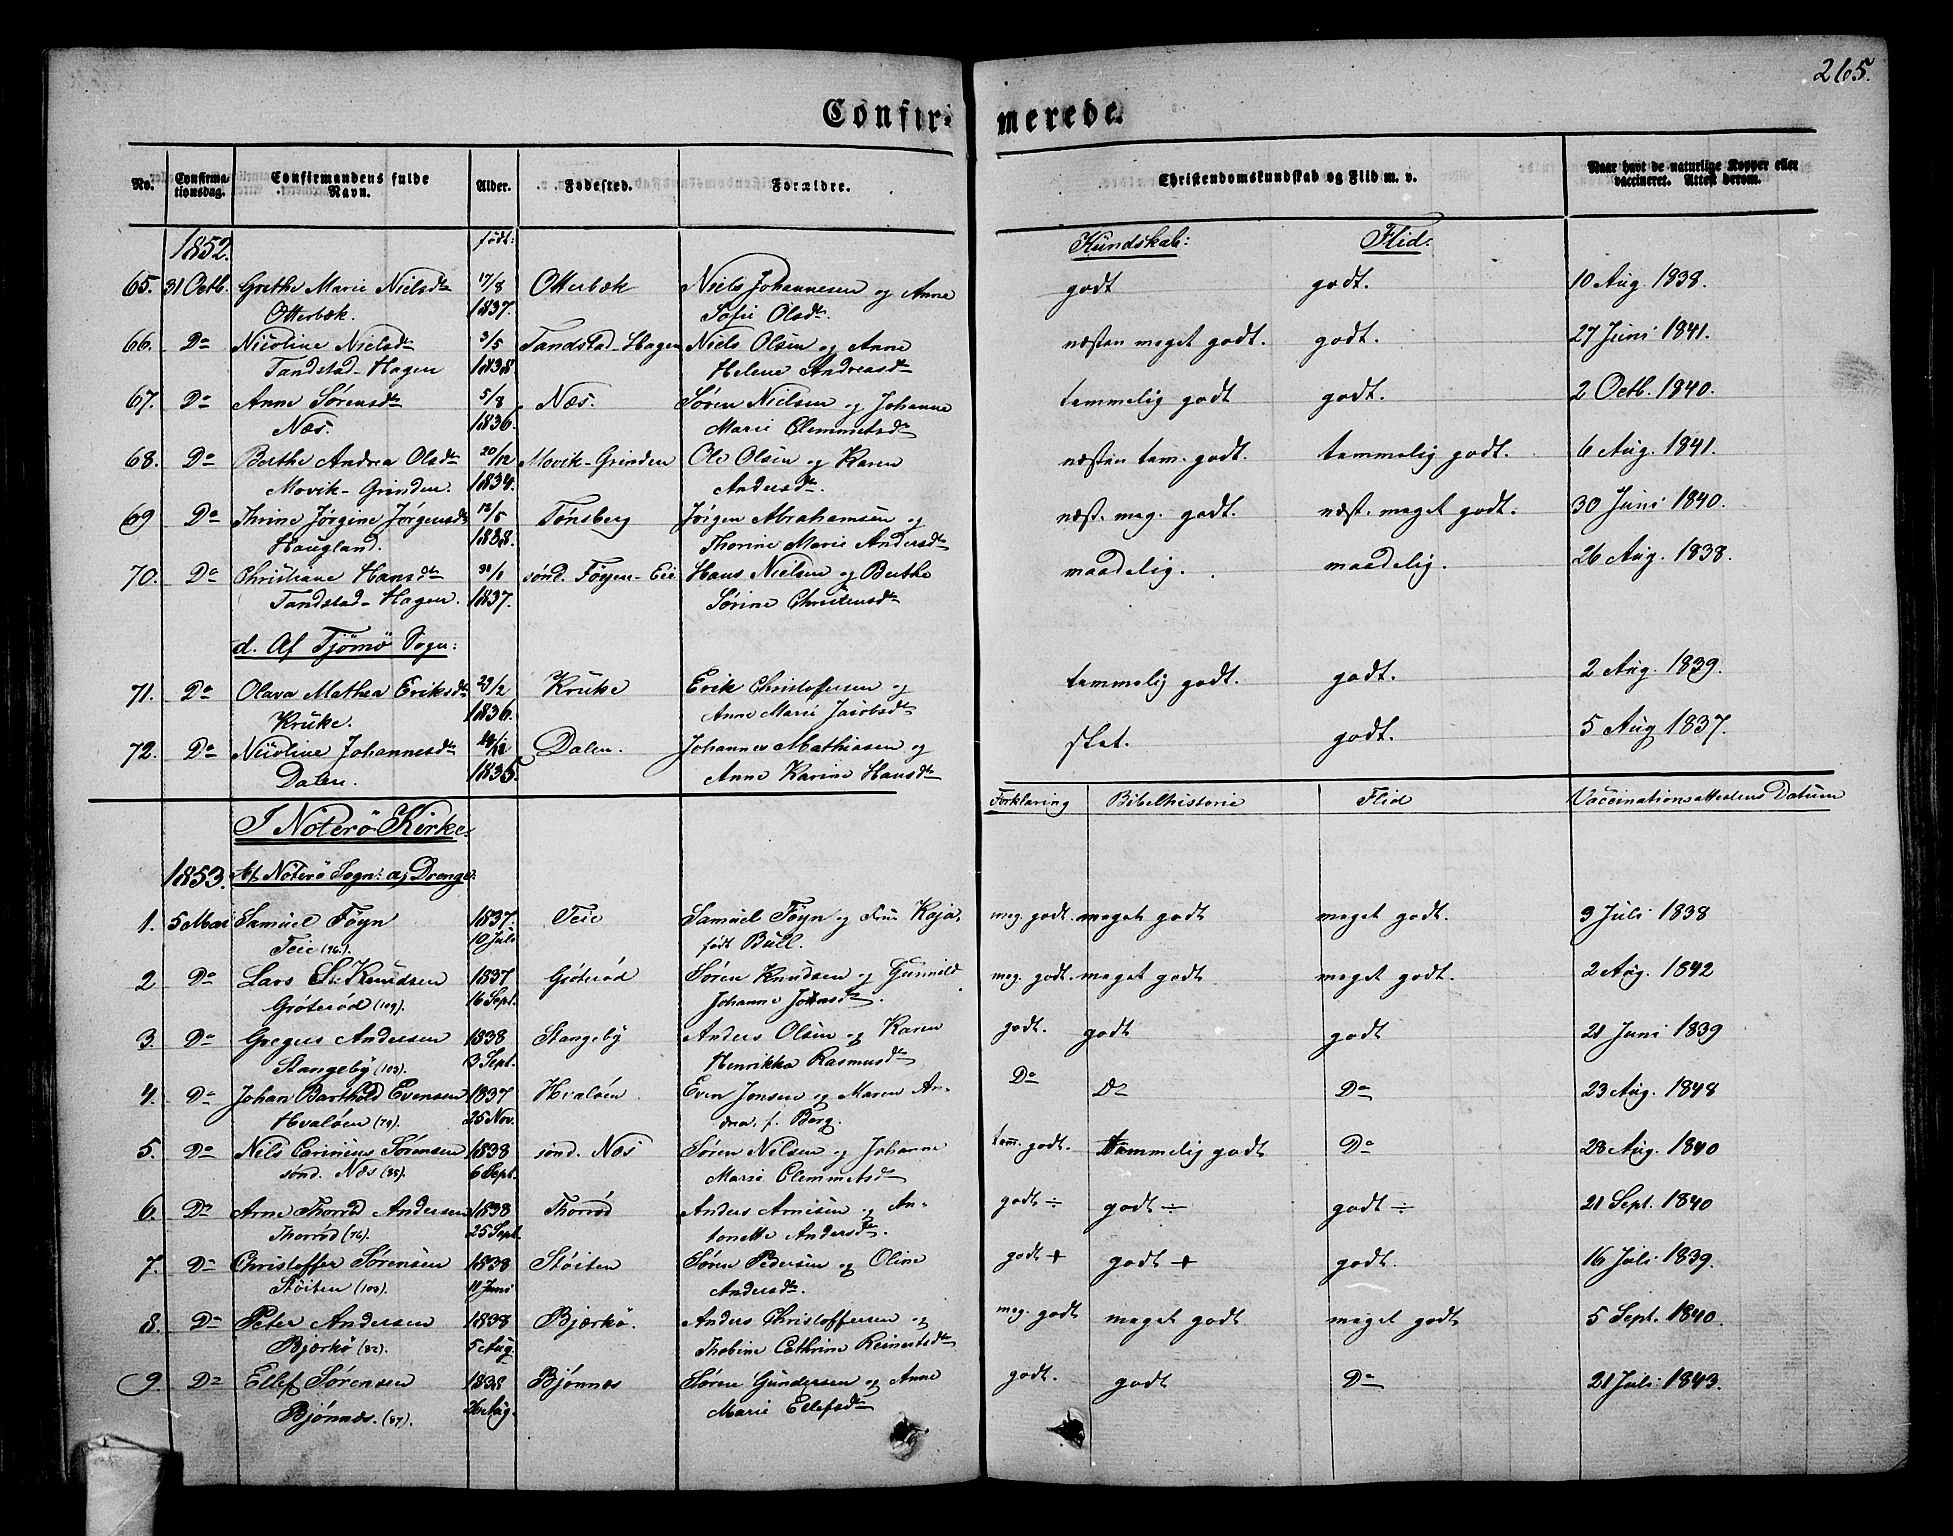 265.
Confirmerede.
No. Confirmationsdag. Confirmandens fulde Navn. Alder. Fødested. Forældre. Christendomskundskab og Flid m. v. Naar havt de naturlige Kopper eller vaccineret. Attest derom.
1852. født: Kundskab: Flid:
65. 31 Octb. Grethe Marie Nielsdtr 17/8 Otterbæk Niels Johannesen og Anne godt godt. 10 Aug. 1838.
Otterbæk. 1837. Sofie Olsdtr.
66. Do Nicoline Nielsdtr 3/5 Tandstad-Hagen Niels Olsen og Anne næsten meget godt. godt. 27 Juni 1841.
Tandstad-Hagen 1838 Helene Andreasdtr
67. Do Anne Sørensdtr 5/8 Næs. Søren Nielsen og Johanne temmelig godt godt. 2 Octb. 1840.
Næs. 1836. Marie Clemmetsdtr
68. Do Berthe Andrea Olsdtr 20/12 Movik-Grinden Ole Olsen og Karen næsten tem. godt. temmelig godt. 6 Aug. 1841.
Movik-Grinden. 1834. Andersdtr.
69 Do Thrine Jørgine Jørgensdtr 12/5 Tønsberg Jørgen Abrahamsen og næst. meg. godt. næst. meget godt. 30 Juni 1840.
Haugland. 1838. Thorine Marie Andersdtr
70. Do Christiane Hansdtr /1 sønd. Føyen-Eie Hans Nielsen og Berthe maadelig. maadelig. 26 Aug. 1838.
Tandstad-Hagen. 1837. Sørine Christensdtr
d. Af Tjømø Sogn:
71. Do Olava Mathea Eriksdtr 23/2 Kruke Erik Christoffersen og temmelig godt. godt. 2 Aug. 1839.
Kruke. 1836. Anne Marie Jacobsdtr
72. Do Nicoline Johannesdtr /12 Dalen. Johannes Mathiasen og slet. godt. 5 Aug 1837.
Dalen. 1835. Anne Karine Hansdtr
Forklaring Bibelhistorie Flid Vaccinationsattestens Datum
I Nøterø Kirke.
1853. Af Nøterø Sogn: a, Drenge.
1. 5 Mai Samuel Føyn 1837. Teie Samuel Føyn og Fru Kaja, meg. godt. meget godt meget godt. 3 Juli 1838
Teie (96.) 10 Juli født Bull.
2 Do Lars S. Knudsen 1837 Grøterød Søren Knudsen og Gunnild meg. godt. meget godt meget godt. 2 Aug. 1842
Grøterød (109). 16 Sept. Johanne Johnsdtr.
3. Do Gregers Andersen 1838 Stangeby Anders Olsen og Karen godt. godt godt 21 Juni 1839
Stangeby (103). 3 Sept. Henrikka Rasmusdtr
4. Do Johan Barthold Evensen 1837 Hvaløen Even Jonsen og Maren An- Do Do Do 23 Aug. 1848
Hvaløen (79). 25 Nov. drea. f. Berg.
5. Do Nils Carinius Sørensen 1838 sønd. Næs Søren Nilsen og Johanne tem. godt. temmelig godt Do 28 Aug. 1840
sønd. Næs (85). 6 Sept. Marie Clemmetsdtr
6. Do Arne Thorrød Andersen 1838 Thorrød Anders Arnisen og An- godt ÷ godt ÷ godt ÷ 21 Sept. 1840
Thorrød (76). 25 Sept. tonette Andersdtr.
7. Do Christoffer Sørensen 1838 Støiten Søren Pedersen og Oline godt + godt + godt. 16 Juli 1839.
Støiten (103). 11 Juni Andersdtr.
8. Do Peter Andersen 1838 Bjærkø. Anders Christoffersen og meg. godt meget godt meget godt 5 Sept. 1840.
Bjærkø (82). 5 Aug. Thobine Cathrine Reinertsdtr
9. Do Ellef Sørensen 1838 Bjønnes Søren Gundersen og Anne godt. godt Do 21 Juli 1843.
Bjønnæs. (87). 26 Aug. Marie Ellefsdtr